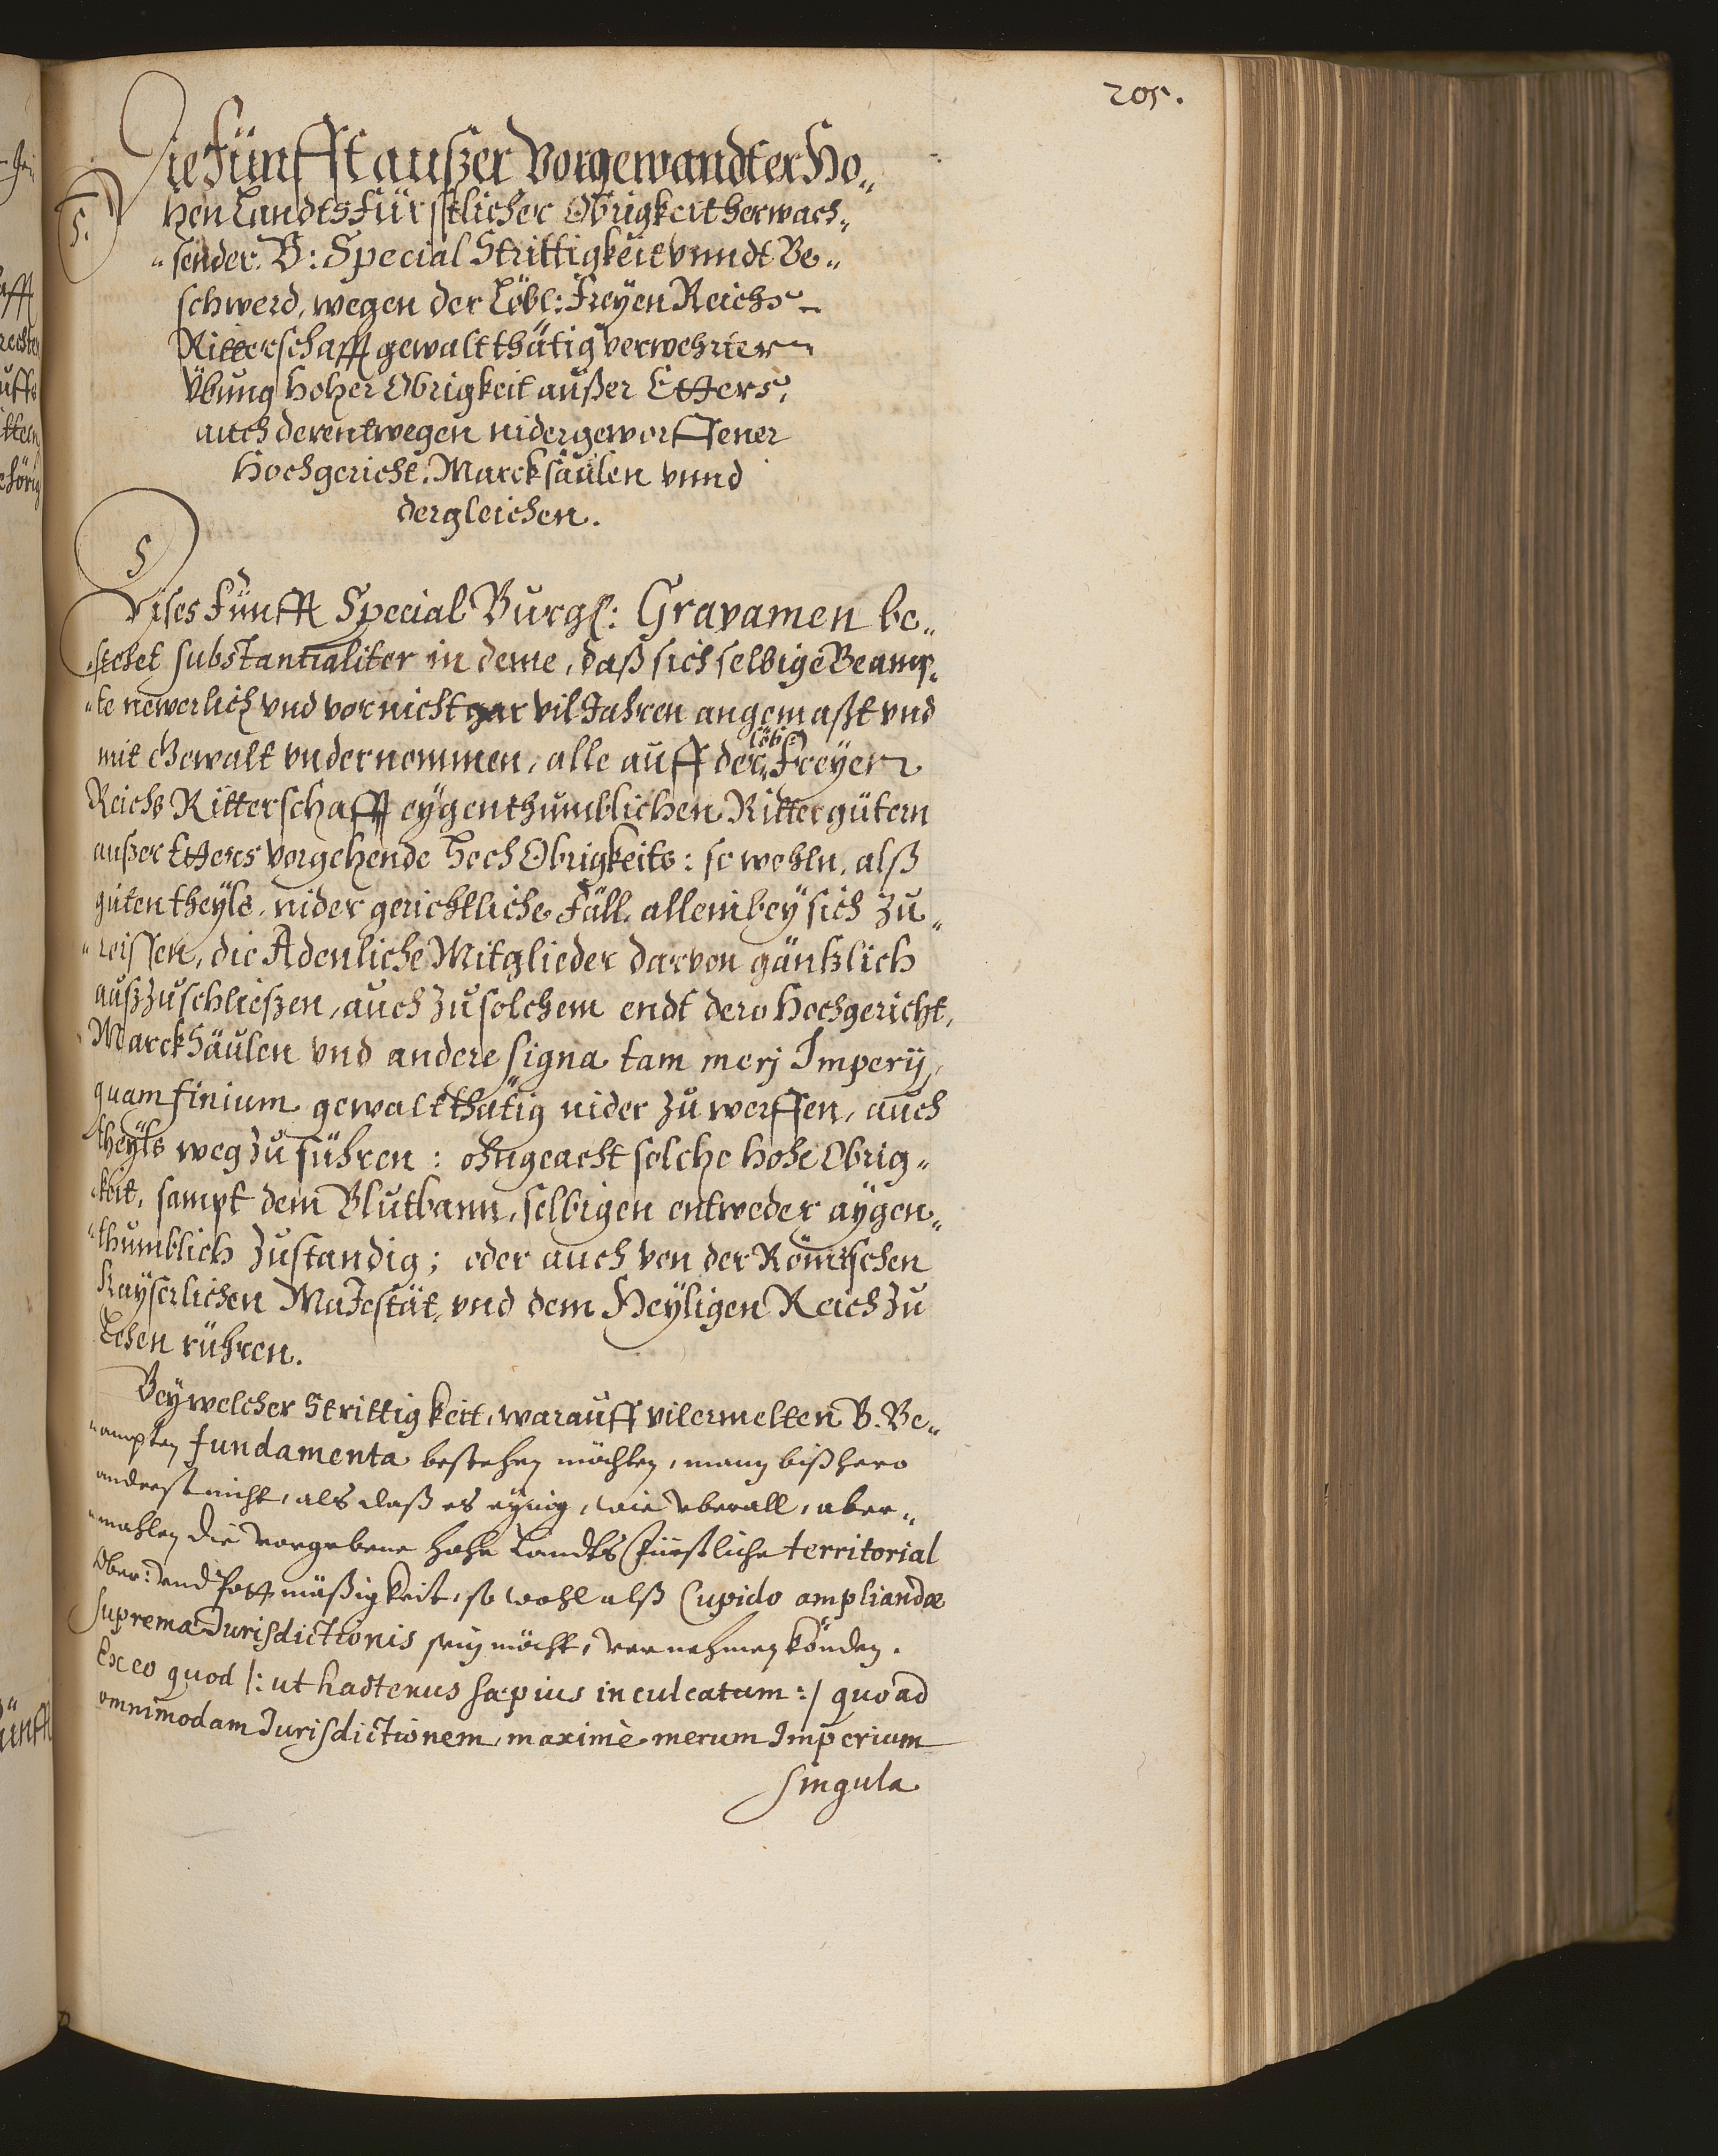 205.
Die Fünfft außer Vorgewandter Ho„
5.
hen Landtsfürstlicher Obrigkeit herwach„
„sender. B: Special Strittigkeit vnndt Be„
schwerd, wegen der Löbl: Freyen Reichs
Ritterschafft gewaltthätig verwehrter
Vbung Hoher Obrigkeit außer Etters,
auch derentwegen nidergeworffener
Hochgericht, Marcksäulen vnnd
dergleichen.
5
Dises Fünfft Special Burg: Gravamen be„
„stehet substantialiter in deme, daß sich selbige Beamp„
„te newerlich vnd vor nicht gar vil Jahren angemaßt vnd
löbl:
mit Gewalt vndernommen, alle auff der Freyen
Reichs Ritterschafft eygenthumblichen Rittergütern
außer Etters vorgehende Hoch Obrigkeits: so wohln, alß
guten theyls, nider gerichtliche Fäll, allein bey sich zu„
„reissen, die Adenliche Mitglieder darvon gäntzlich
außzuschließen, auch zu solchem endt dero Hochgericht,
Marcksäulen vnd andere signa tam merj Imperij,
quam finium gewaltthätig nider zu werffen, auch
theyls weg zu führen: ohngeacht solche hohe Obrig„
„keit, sampt dem Blutbann, selbigen entweder aygen„
„thumblich zustandig; oder auch von der Römischen
Kayserlichen Majestät, vnd dem Heyligen Reich zu
Lehen rühren.
Bey welcher Strittigkeit, warauff vilermelten B. Be„
„ampten fundamenta bestehen möchten, mann bißhero
anderst nicht, als daß es eynig, wie vberall, aber„
„mahlen die vorgebene hohe Landts Fürstliche territorial
Ober: vnd Pottmäßigkeit, so wohl alß Cupido ampliandæ
supremæ Jurisdictionis sein möcht, vernehmen könden.
Ex eo quod /: ut hactenus sæpius inculcatum :/ quoad
omnimodam Jurisdictionem, maximè merum Imperium
singula